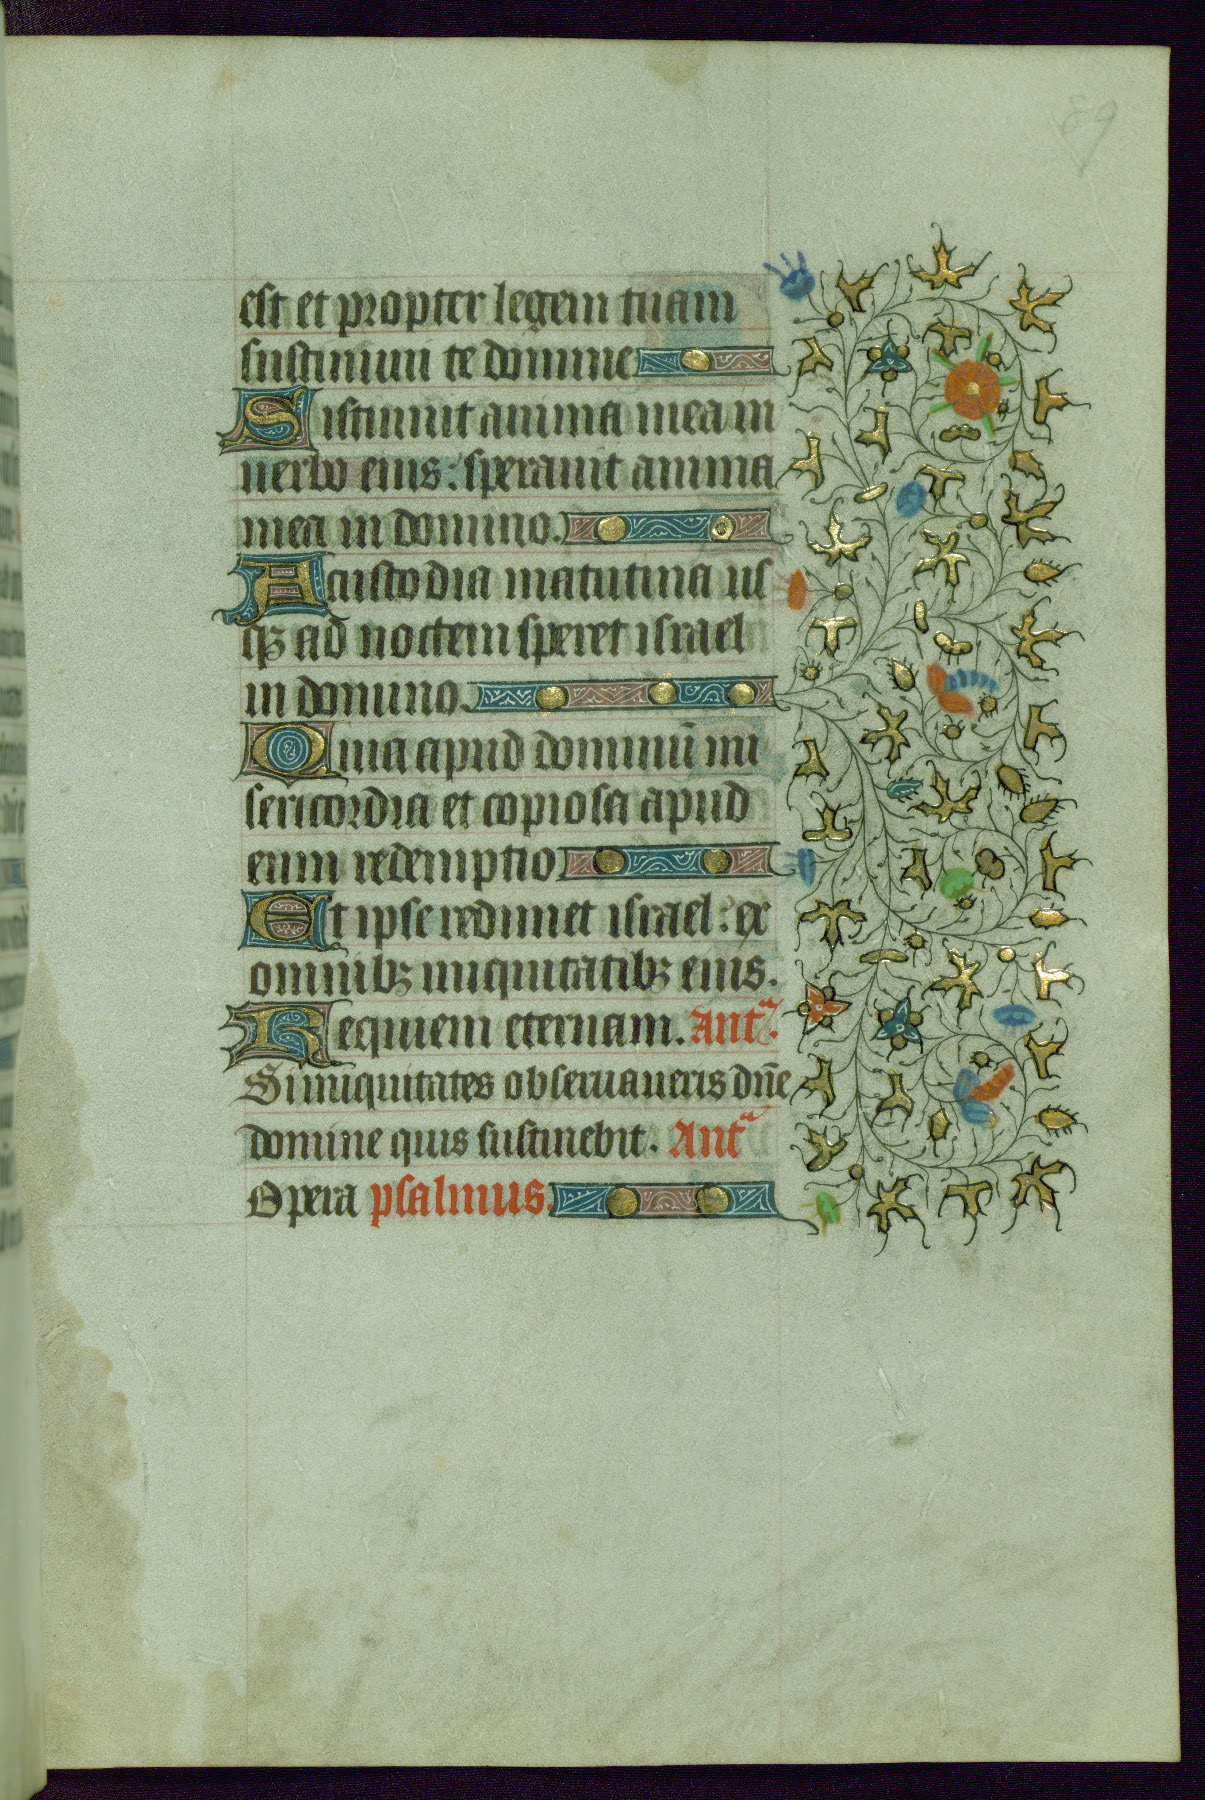 89
est et propter legem tuam
sustinuui te domine
Sistinuit anima mea in
uerbo eius: sperauit anima
mea in domino.
A custodia matutina us
qȝ ad noctem speret israel
in domino.
Quia apud dominū mi
sericordia et copiosa apud
eum redemptio
Et ipse redimet israel: ex
omnibȝ iniquitatibȝ eius.
Requiem eternam. Antᵃ.
Si iniquitates obseruaueris dn̄e
domine quis sustinebit. Antᵃ
Opera psalmus.